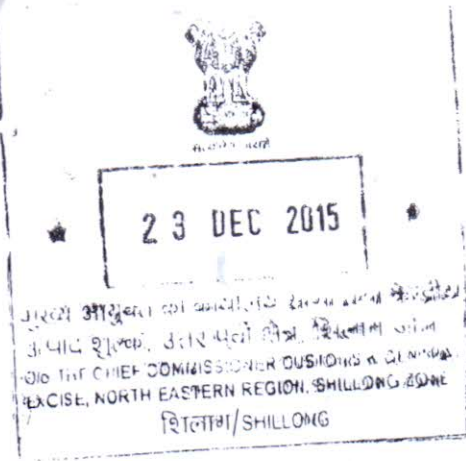 23 DEC 2015
मुख्य आयुक्त का कार्यालय
उत्पाद शुल्क, उत्तर पूर्वी क्षेत्र, शिलांग जोन
O/o THE CHIEF COMMISSIONER CUSTOMS & CENTRAL
EXCISE, NORTH EASTERN REGION, SHILLONG ZONE
शिलांग/SHILLONG